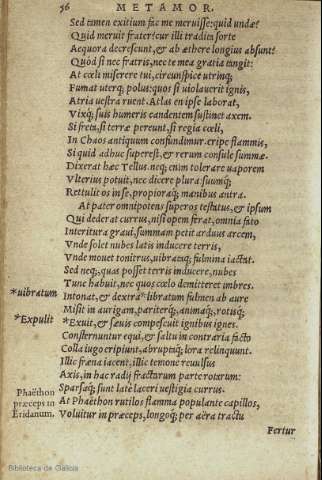 56 METAMOR.
Sed tamen exitium fac me meruisse: quid undæ?
Quid meruit frater? cur illi tradita sorte
Aequora decrescunt, & ab æthere longius absunt?
Quòd si nec fratris, nec te mea gratia tangit:
At cœli miserere tui, circunspice utrinq;
Fumat uterq; polus: quos si uiolauerit ignis,
Atria uestra ruent. Atlas en ipse laborat,
Vixq; suis humeris candentem sustinet axem.
Si freta, si terræ pereunt, si regia cœli,
In Chaos antiquum confundimur. eripe flammis,
Si quid adhuc superest, & rerum consule summæ.
Dixerat hæc Tellus. neq; enim tolerare uaporem
Vlterius potuit, nec dicere plura: suumq;
Rettulit os in se, propioraq; manibus antra.
At pater omnipotens superos testatus, & ipsum
Qui dederat currus, nisi opem ferat, omnia fato
Interitura graui, summam petit arduus arcem,
Vnde solet nubes latis inducere terris,
Vnde mouet tonitrus, uibrataq; fulmina iactat.
Sed neq; quas posset terris inducere, nubes
Tunc habuit, nec quos cœlo demitteret imbres.
*uibratum Intonat, & dextra *libratum fulmen ab aure
Misit in aurigam, pariterq; animaq́; rotisq;
*Expulit *Exuit, & sæuis compescuit ignibus ignes.
Consternuntur equi, & saltu in contraria facto
Colla iugo eripiunt, abruptaq; lora relinquunt.
Illic fræna iacent, illic temone reuulsus
Axis, in hac radij fractarum parte rotarum:
Sparsaq; sunt latè laceri uestigia currus.
Phaëthon præceps in Eridanum. At Phaëthon rutilos flamma populante capillos,
Voluitur in præceps, longoq; per aëra tractu
Fertur
Biblioteca de Galicia